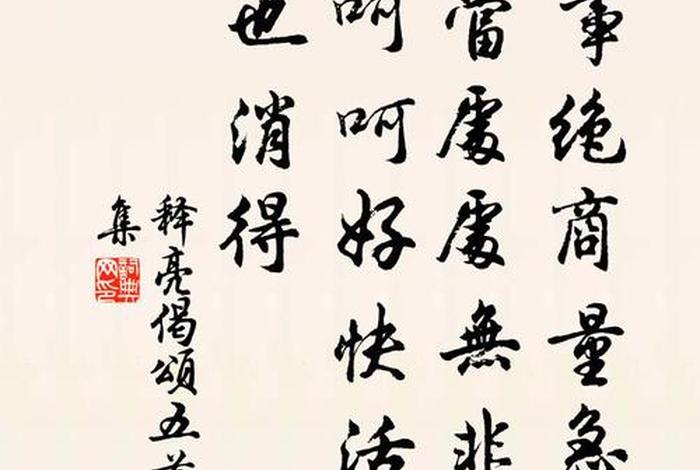 事绝商量
當處處無非
呵呵好快活
也消得
释亮偈頌五首
集
詞典网印